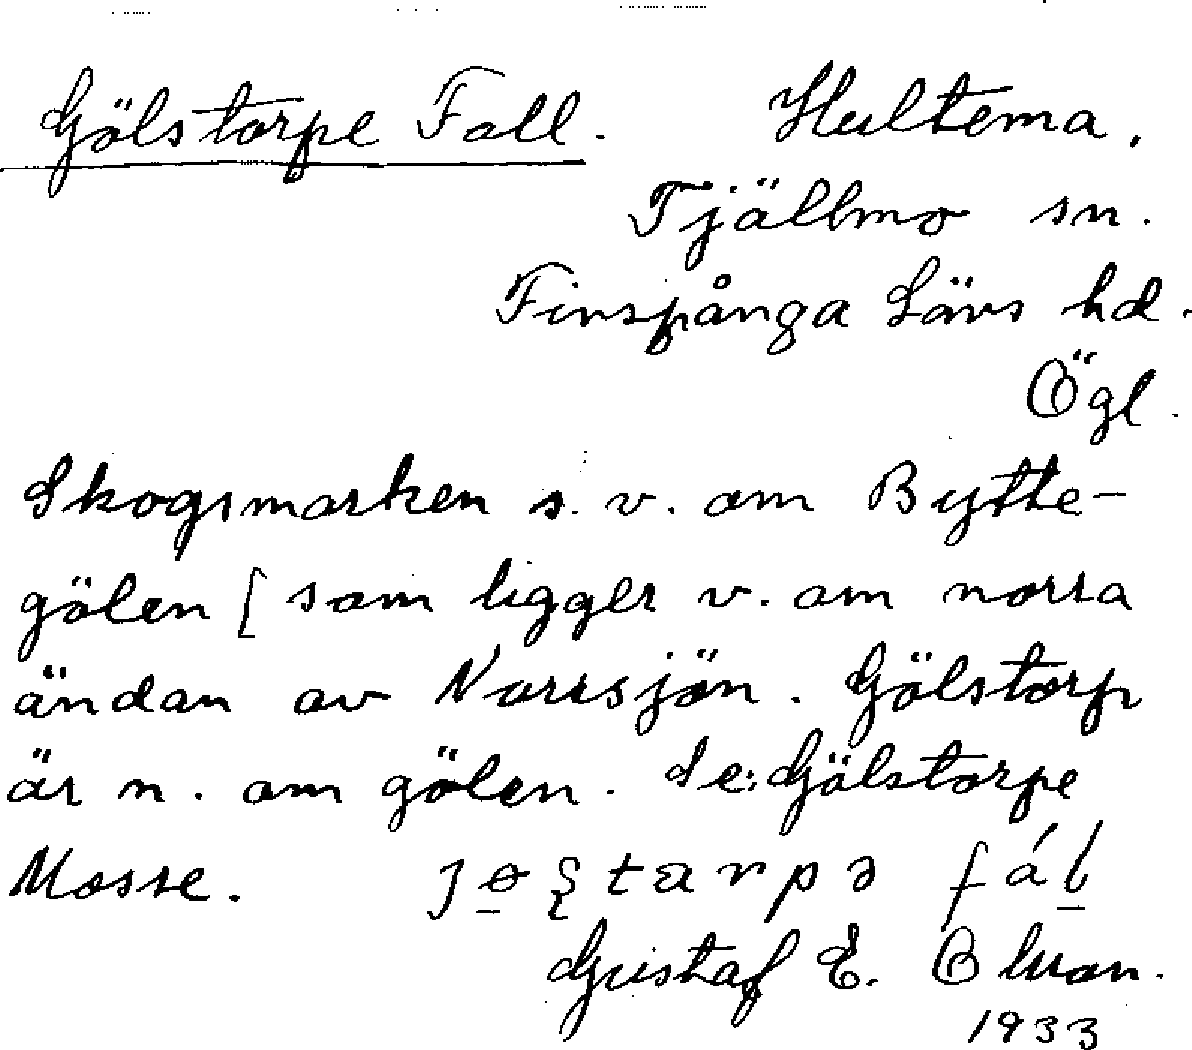 Gölstorpe Fall. Hultema,
Tjällmo sn.
Finspånga Läns hd.
Ögl.
Skogsmarken s. v. om Bytte-
gölen [ som ligger v. om norra
ändan av Norrsjön. Gölstorp
är n. om gölen. Se: Gölstorpe
Mosse.
Gustaf E.
1933